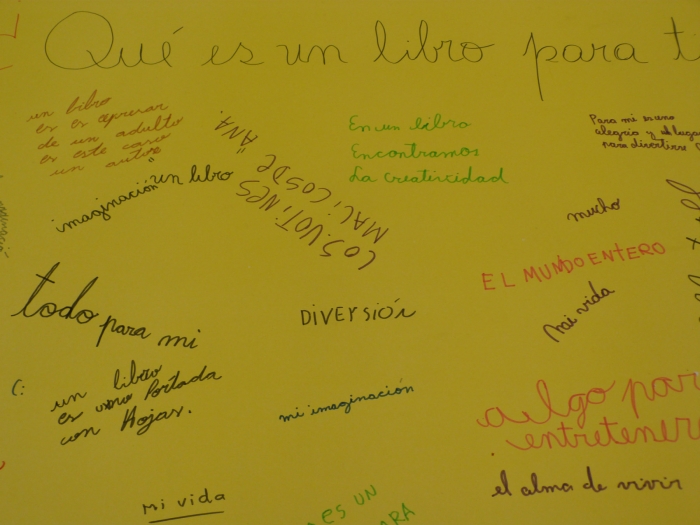 Qué es un libro para ti
un libro
es es apresar
de un adulto
es este caso
un autor
imaginación "un libro"
LOS.VOTINES
MALICOS DE "ANA.
En un libro
Encontramos
La creatividad
Para mi es una
alegria y el lugar
para divertirse
mucho
EL MUNDO ENTERO
mi vida
todo para mi
DIVERSIÓN
C:
un libro
es una Portada
con Hojas.
mi imaginación
algo para
entretener
el alma de vivir
Mi vida
ES UN